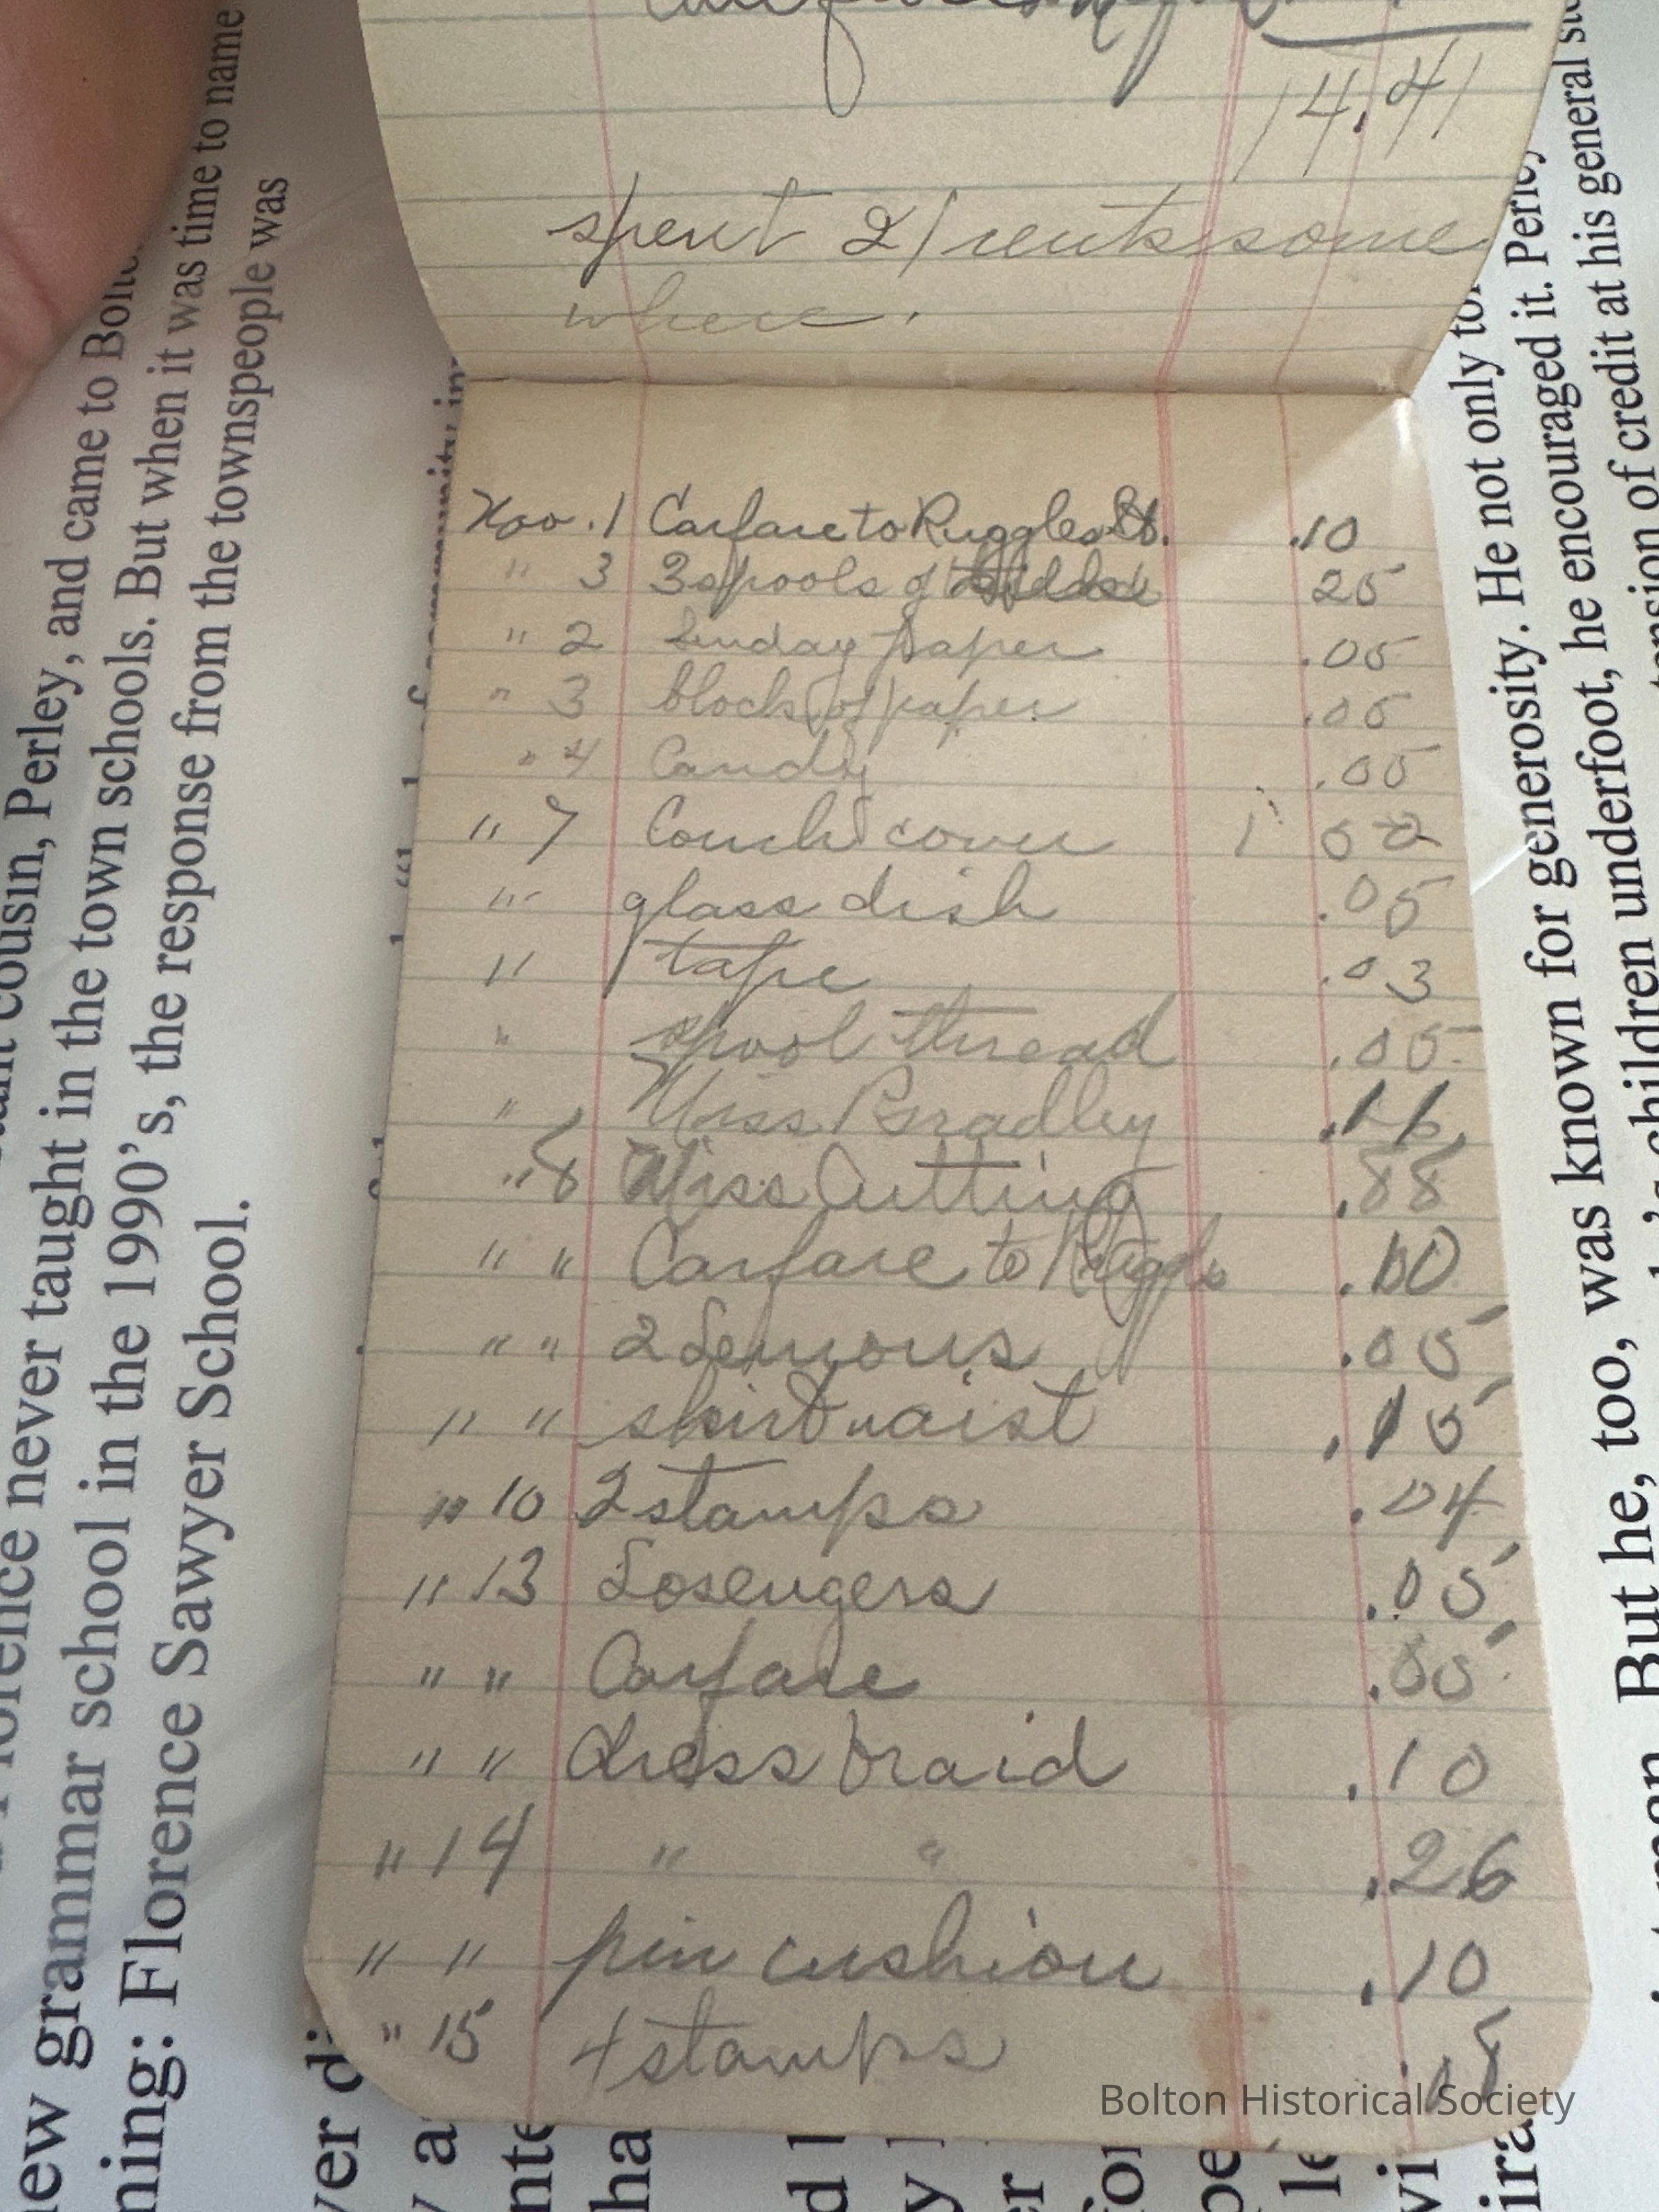 14.41
spent 21 cents some
where.
Nov. 1 Carfare to Ruggles St. .10
" 3 3 spools of 25
" 2 Sunday paper .05
" 3 block of paper .05
" 4 Candy .05
" 7 Couch cover 1
" glass dish .05
" tape .03
" spool thread .05
" Miss Bradley
" 8 Miss Cutting .88
" " Carfare to Ruggls .10
" " 2 Lemons .05
" " shirtwaist .15
" 10 2 stamps .04
" 13 Losengers .05
" " Carfare .05
" " dress braid .10
" 14 " " .26
" " pin cushion .10
" 15 4 stamps
Bolton Historical Society
cousin, Perley, and came to
never taught in the town schools. But when it was time to name
new grammar school in the 1990's, the response from the townspeople was
Florence Sawyer School.
He not only
was known for generosity.
underfoot, he encouraged it.
of credit at his general
But he, too,